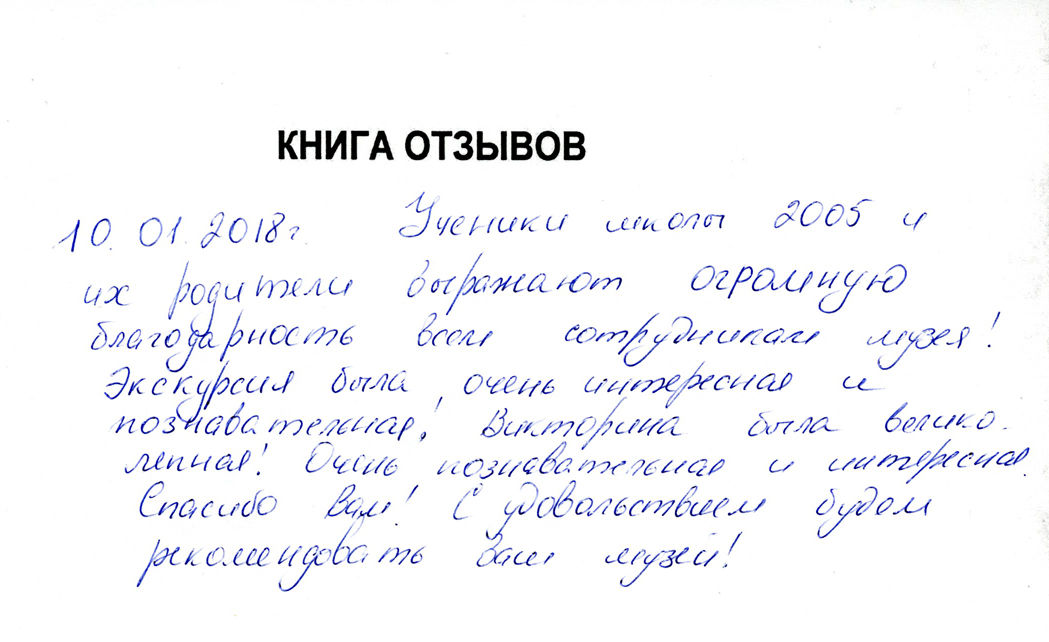 КНИГА ОТЗЫВОВ
10.01.2018г. Ученики школы 2005 и
их родители выражают огромную
благодарность всем сотрудникам музея!
Экскурсия была очень интересная и
познавательная! Викторина была велико-
лепная! Очень познавательная и интересная.
Спасибо Вам! С удовольствием будем
рекомендовать ваш музей!